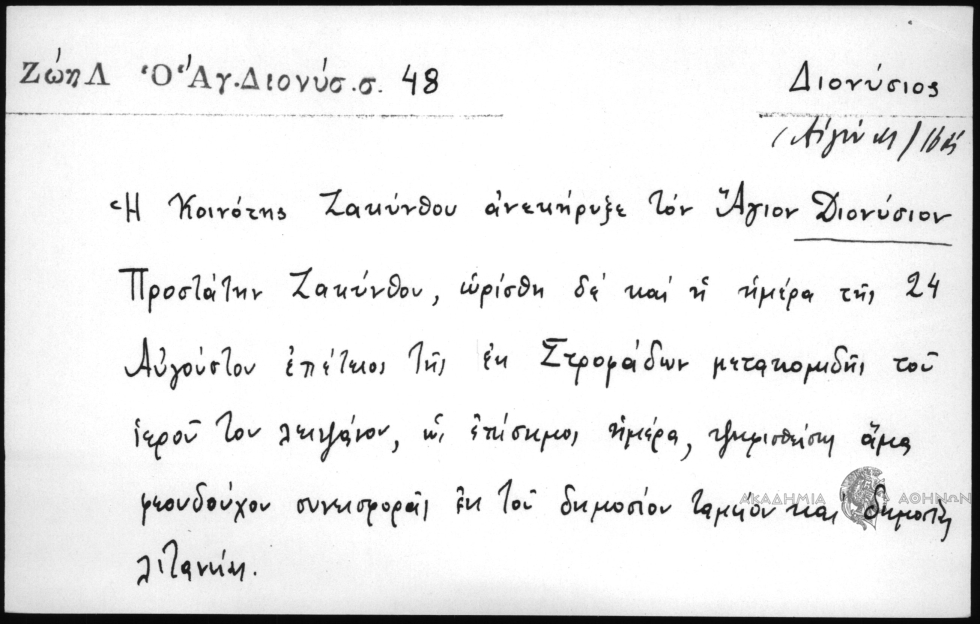 Ζώη Λ Ὁ Ἅγ. Διονύσ. σ. 48
Διονύσιος
Αἰγίνης
Ἡ Κοινότης Ζακύνθου ἀνεκήρυξε τόν Ἅγιον Διονύσιον
Προστάτην Ζακύνθου, ὡρίσθη δέ καί ἡ ἡμέρα τῆς 24
Αὐγούστου ἐπέτειος τῆς ἐκ Στροφάδων μετακομιδῆς τοῦ
ἱεροῦ του λειψάνου, ὡς ἐπίσημος ἡμέρα, ψηφισθείσης ἅμα
συνεισφορᾶς ἐκ τοῦ δημοσίου ταμείου και δημοσίας
λιτανείας.
ΑΚΑΔΗΜΙΑ ΑΘΗΝΩΝ